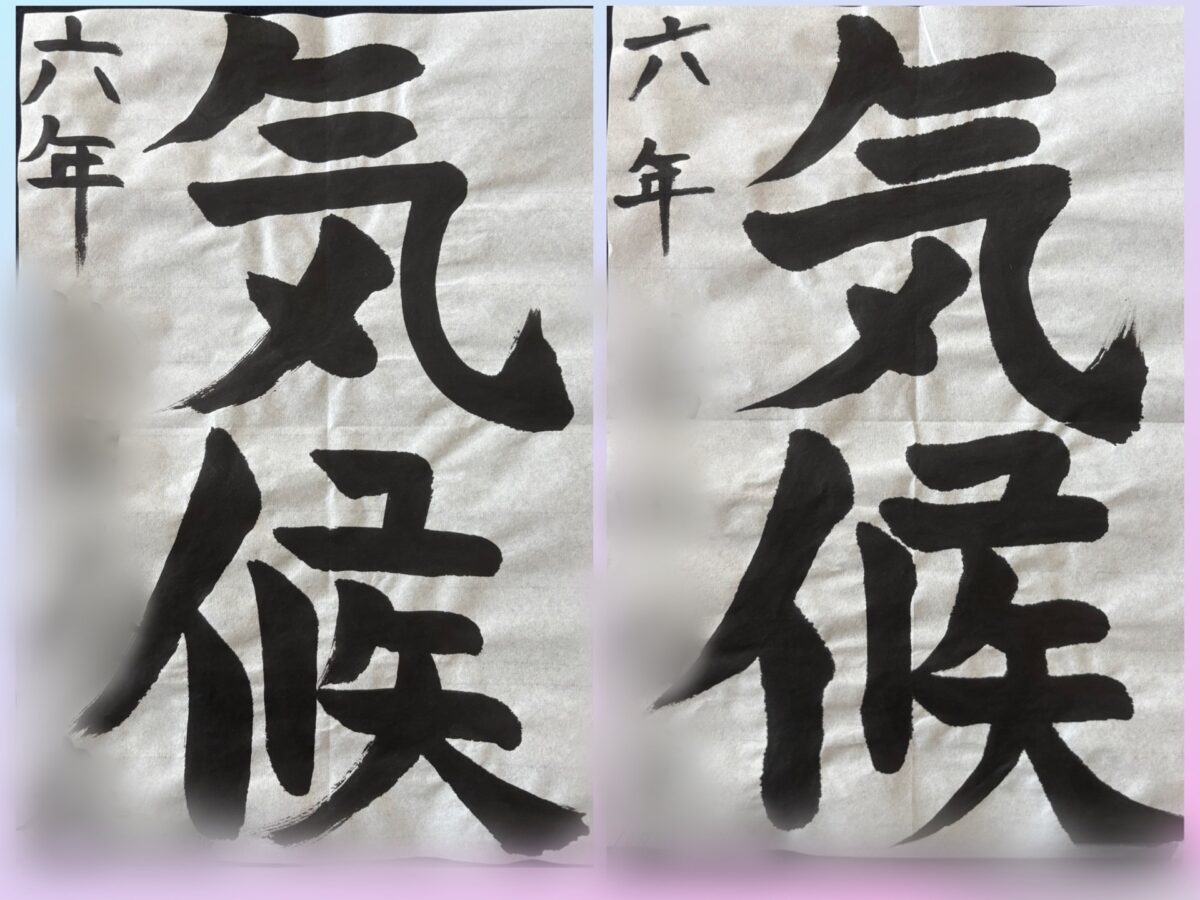 気候
六年
気候
六年